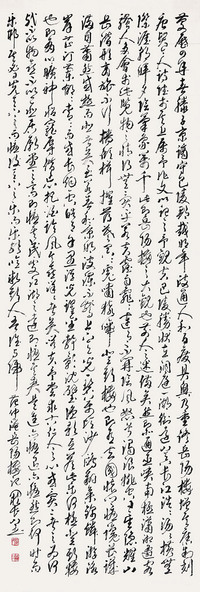 慶曆四年春滕子京謫守巴陵郡越明年政通人和百廢具興乃重修岳陽樓增其舊制刻
唐賢今人詩賦於其上屬予作文以記之予觀夫巴陵勝狀在洞庭一湖銜遠山吞長江浩浩湯湯橫無
際涯朝暉夕陰氣象萬千此則岳陽樓之大觀也前人之述備矣然則北通巫峽南極瀟湘遷客
騷人多會於此覽物之情得無異乎若夫霪雨霏霏連月不開陰風怒號濁浪排空日星隱耀山
岳潛形商旅不行檣傾楫摧薄暮冥冥虎嘯猿啼登斯樓也則有去國懷鄉憂讒畏譏
滿目蕭然感極而悲者矣至若春和景明波瀾不驚上下天光一碧萬頃沙鷗翔集錦鱗游泳
岸芷汀蘭郁郁青青而或長煙一空皓月千里浮光躍金靜影沉璧漁歌互答此樂何極登斯樓
也則有心曠神怡寵辱偕忘把酒臨風其喜洋洋者矣嗟夫予嘗求古仁人之心或異二者之為何
哉不以物喜不以己悲居廟堂之高則憂其民處江湖之遠則憂其君是進亦憂退亦憂然則何時而
樂耶其必曰先天下之憂而憂後天下之樂而樂乎噫微斯人吾誰與歸 岳陽樓記